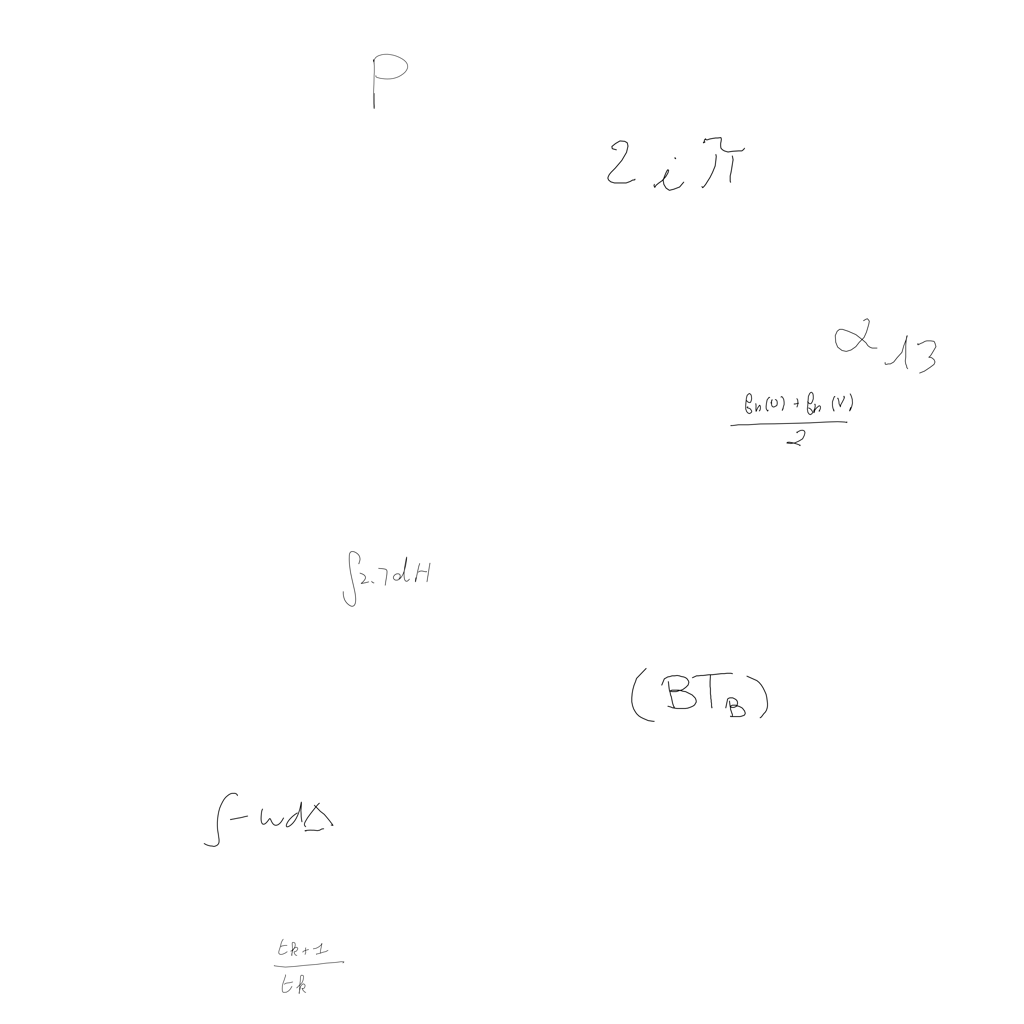 P
2iπ
α_{13}
\frac{f_n(U)+f_n(V)}{2}
∫2.7dH
(BT_B)
∫-wdΔ
\frac{t_{k+1}}{t_k}